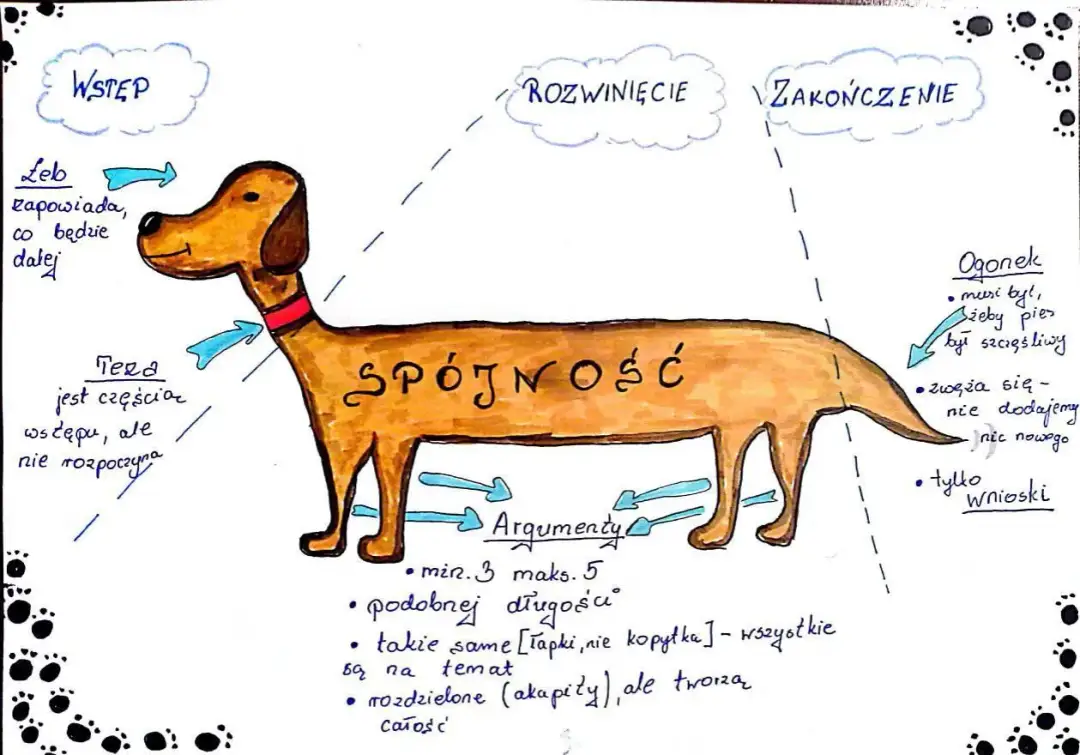 WSTĘP
ROZWINIĘCIE
ZAKOŃCZENIE
Łeb
zapowiada,
co będzie
dalej
Teza
jest częścią
wstępu, ale
nie rozpoczyna
SPÓJNOŚĆ
Argumenty
• min. 3 maks. 5
• podobnej długości
• takie same [łapki, nie kopytka] - wszystkie
są na temat
• rozdzielone (akapity), ale tworzą
całość
Ogonek
• musi być,
żeby pies
był szczęśliwy
• zwęża się -
nie dodajemy
nic nowego
• tylko
wnioski